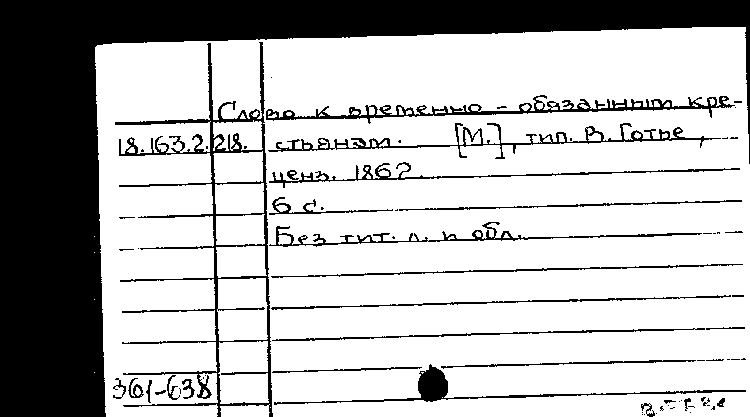 Слово к временно-обязанным кре-
18.163.2.218. стьянам. [М.], тип. В. Готье,
ценз. 1862.
6 с.
Без тит. л. и обл.
361-638